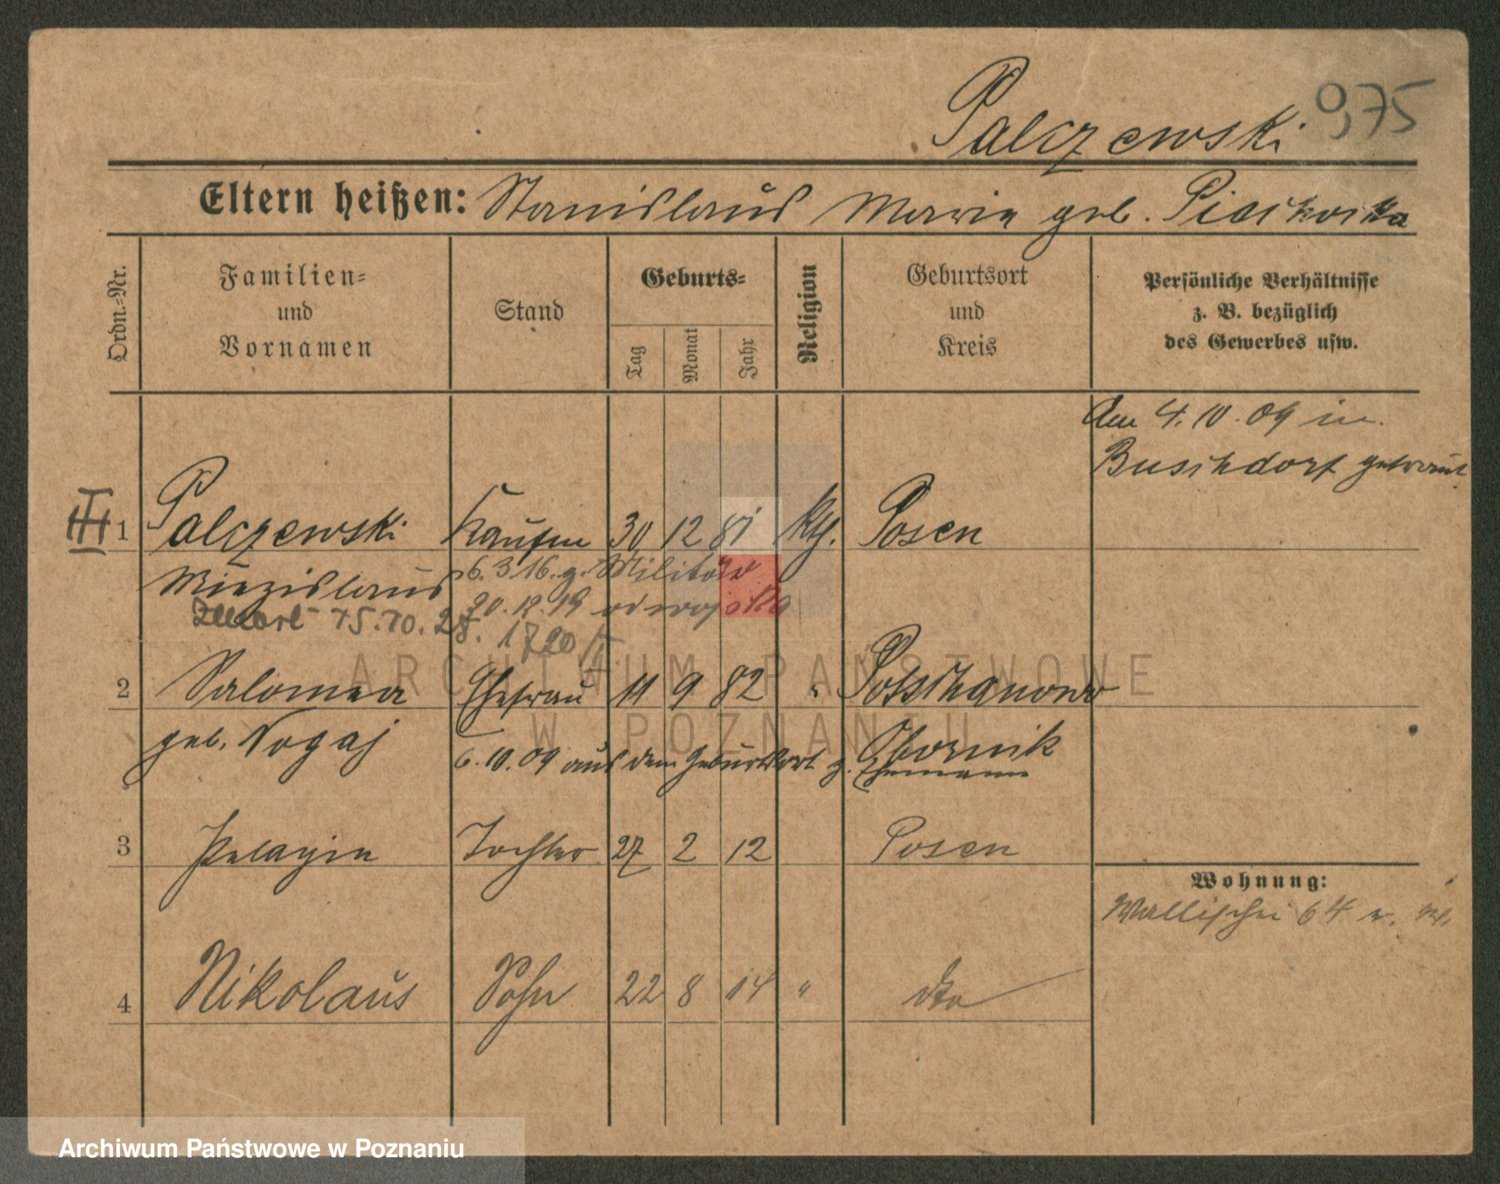 Palczewski 975
Eltern heißen: Stanislaus Marie geb. Piaskowska
Ordn.-Nr.
Familien-
und
Vornamen
Stand
Geburts-
Tag
Monat
Jahr
Religion
Geburtsort
und
Kreis
Persönliche Verhältnisse
z. B. bezüglich
des Gewerbes usw.
Am 4.10.09 in
Buschdorf getraut
III
1 Palczewski Kaufm 30 12 81 kth. Posen
Miezislaus 6.3.16. z. Militär
20.12.19 od wojska
Zmarł 15.10.28. 1720/II
2 Salomea Ehefrau 11 9 82 "
geb. Nogaj Obornik
6.10.09 aus dem Geburtsort z. Ehemann
3 Pelagia Tochter 27 2 12 Posen
Wohnung:
Wallischei 64
4 Nikolaus Sohn 22 8 14 " dto
ARCHIWUM PAŃSTWOWE
W POZNANIU
Archiwum Państwowe w Poznaniu